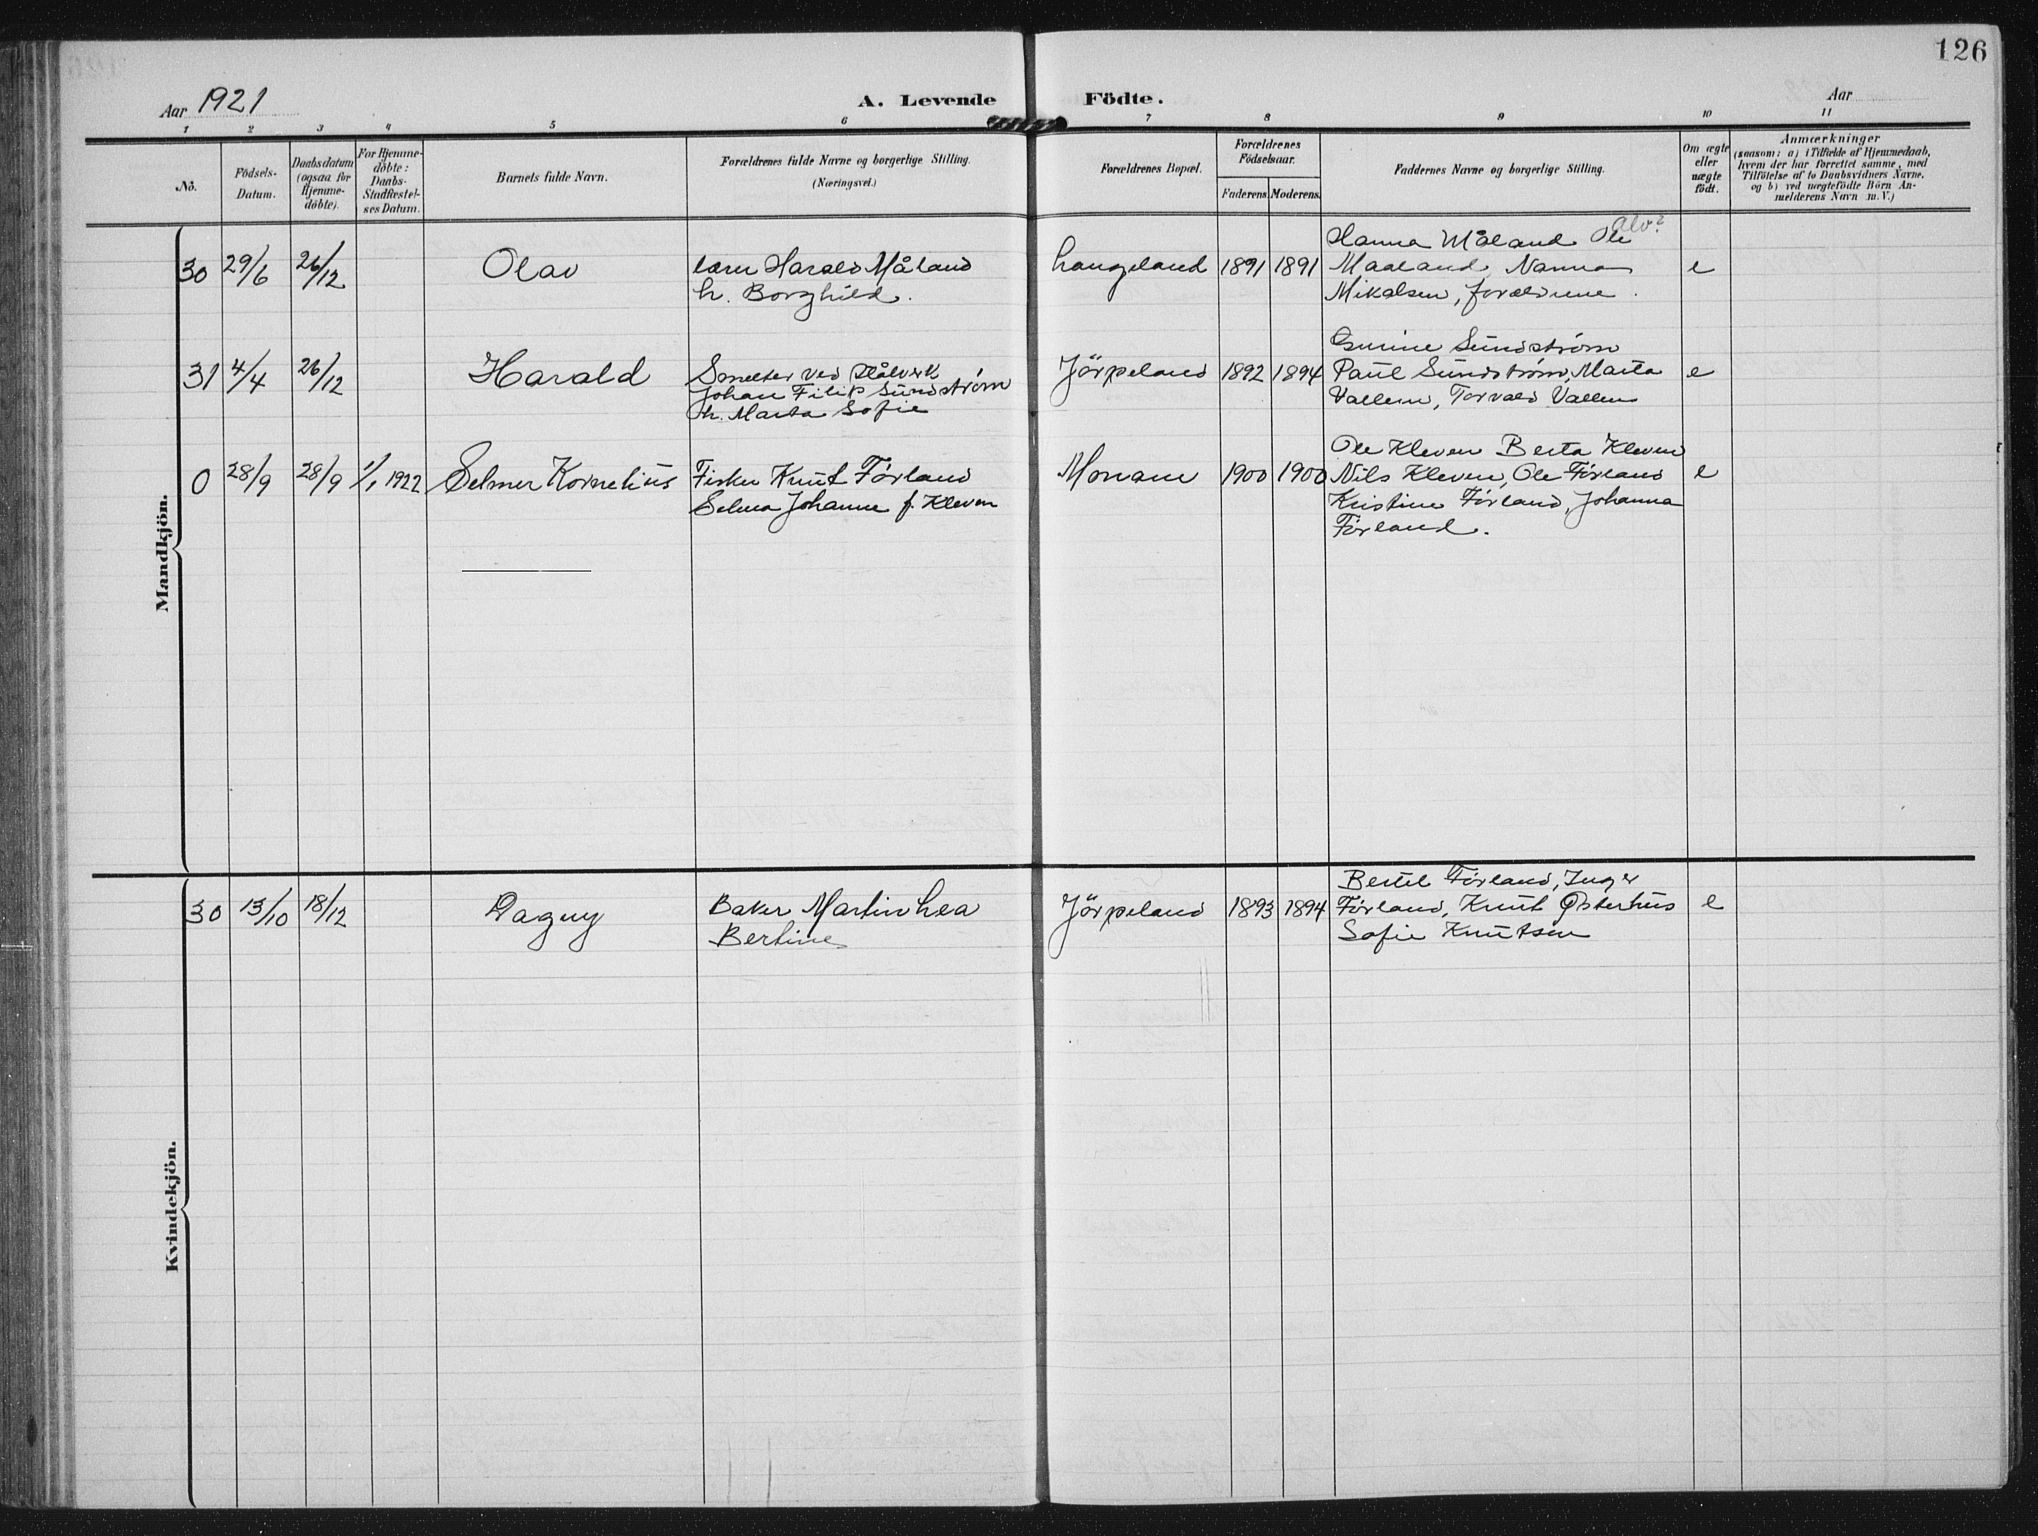 126
Aar 1921
A. Levende Födte.
Aar
1 2 3 4 5 6 7 8 9 10 11
No.
Födsels-
Datum.
Daabsdatum
(ogsaa for
Hjemme-
döbte).
For Hjemme-
döbte:
Daabs-
Stadfæstel-
ses Datum.
Barnets fulde Navn.
Forældrenes fulde Navne og borgerlige Stilling.
(Næringsvei.)
Forældrenes Bopæl.
Forældrenes
Födselsaar.
Faderens. Moderens.
Faddernes Navne og borgerlige Stilling.
Om ægte
eller
uægte
født.
Anmærkninger
(saasom: a) i Tilfælde af Hjemmedaab,
hvem der har forrettet samme, med
Tilföielse af to Daabsvidners Navne,
og b) ved uægtefödte Börn An-
melderens Navn m. V.)
Mandkjön.
30 29/6 26/12 Olav
lærer Harald Måland
h. Borghild.
Langeland 1891 1891
Alv?
Hanna Måland Ole
Maaland, Nanna
Mikalsen, forældrene.
e
31 4/4 26/12 Harald
Smelter ved Stålverk
Johan Filip Sundstrøm
h. Marta Sofie
Jörpeland 1892 1894
Gunine Sundstrøm
Paul Sundstrøm, Marta
Vallem, Torvald Vallem
e
0 28/9 28/9 1/1 1922 Selmer Kornelius
Fisker Knut Førland
Selma Johanne f. Kleven
1900 1900
Ole Kleven Berta Kleven
Nils Kleven, Ole Førland
Kristine Førland, Johanna
Førland.
e
Kvindekjön.
30 13/10 18/12 Dagny
Baker Martin Lea
Bertine
Jörpeland 1893 1894
Bertel Førland, Inger
Førland, Knut Østerhus
Sofie Knutsen
e